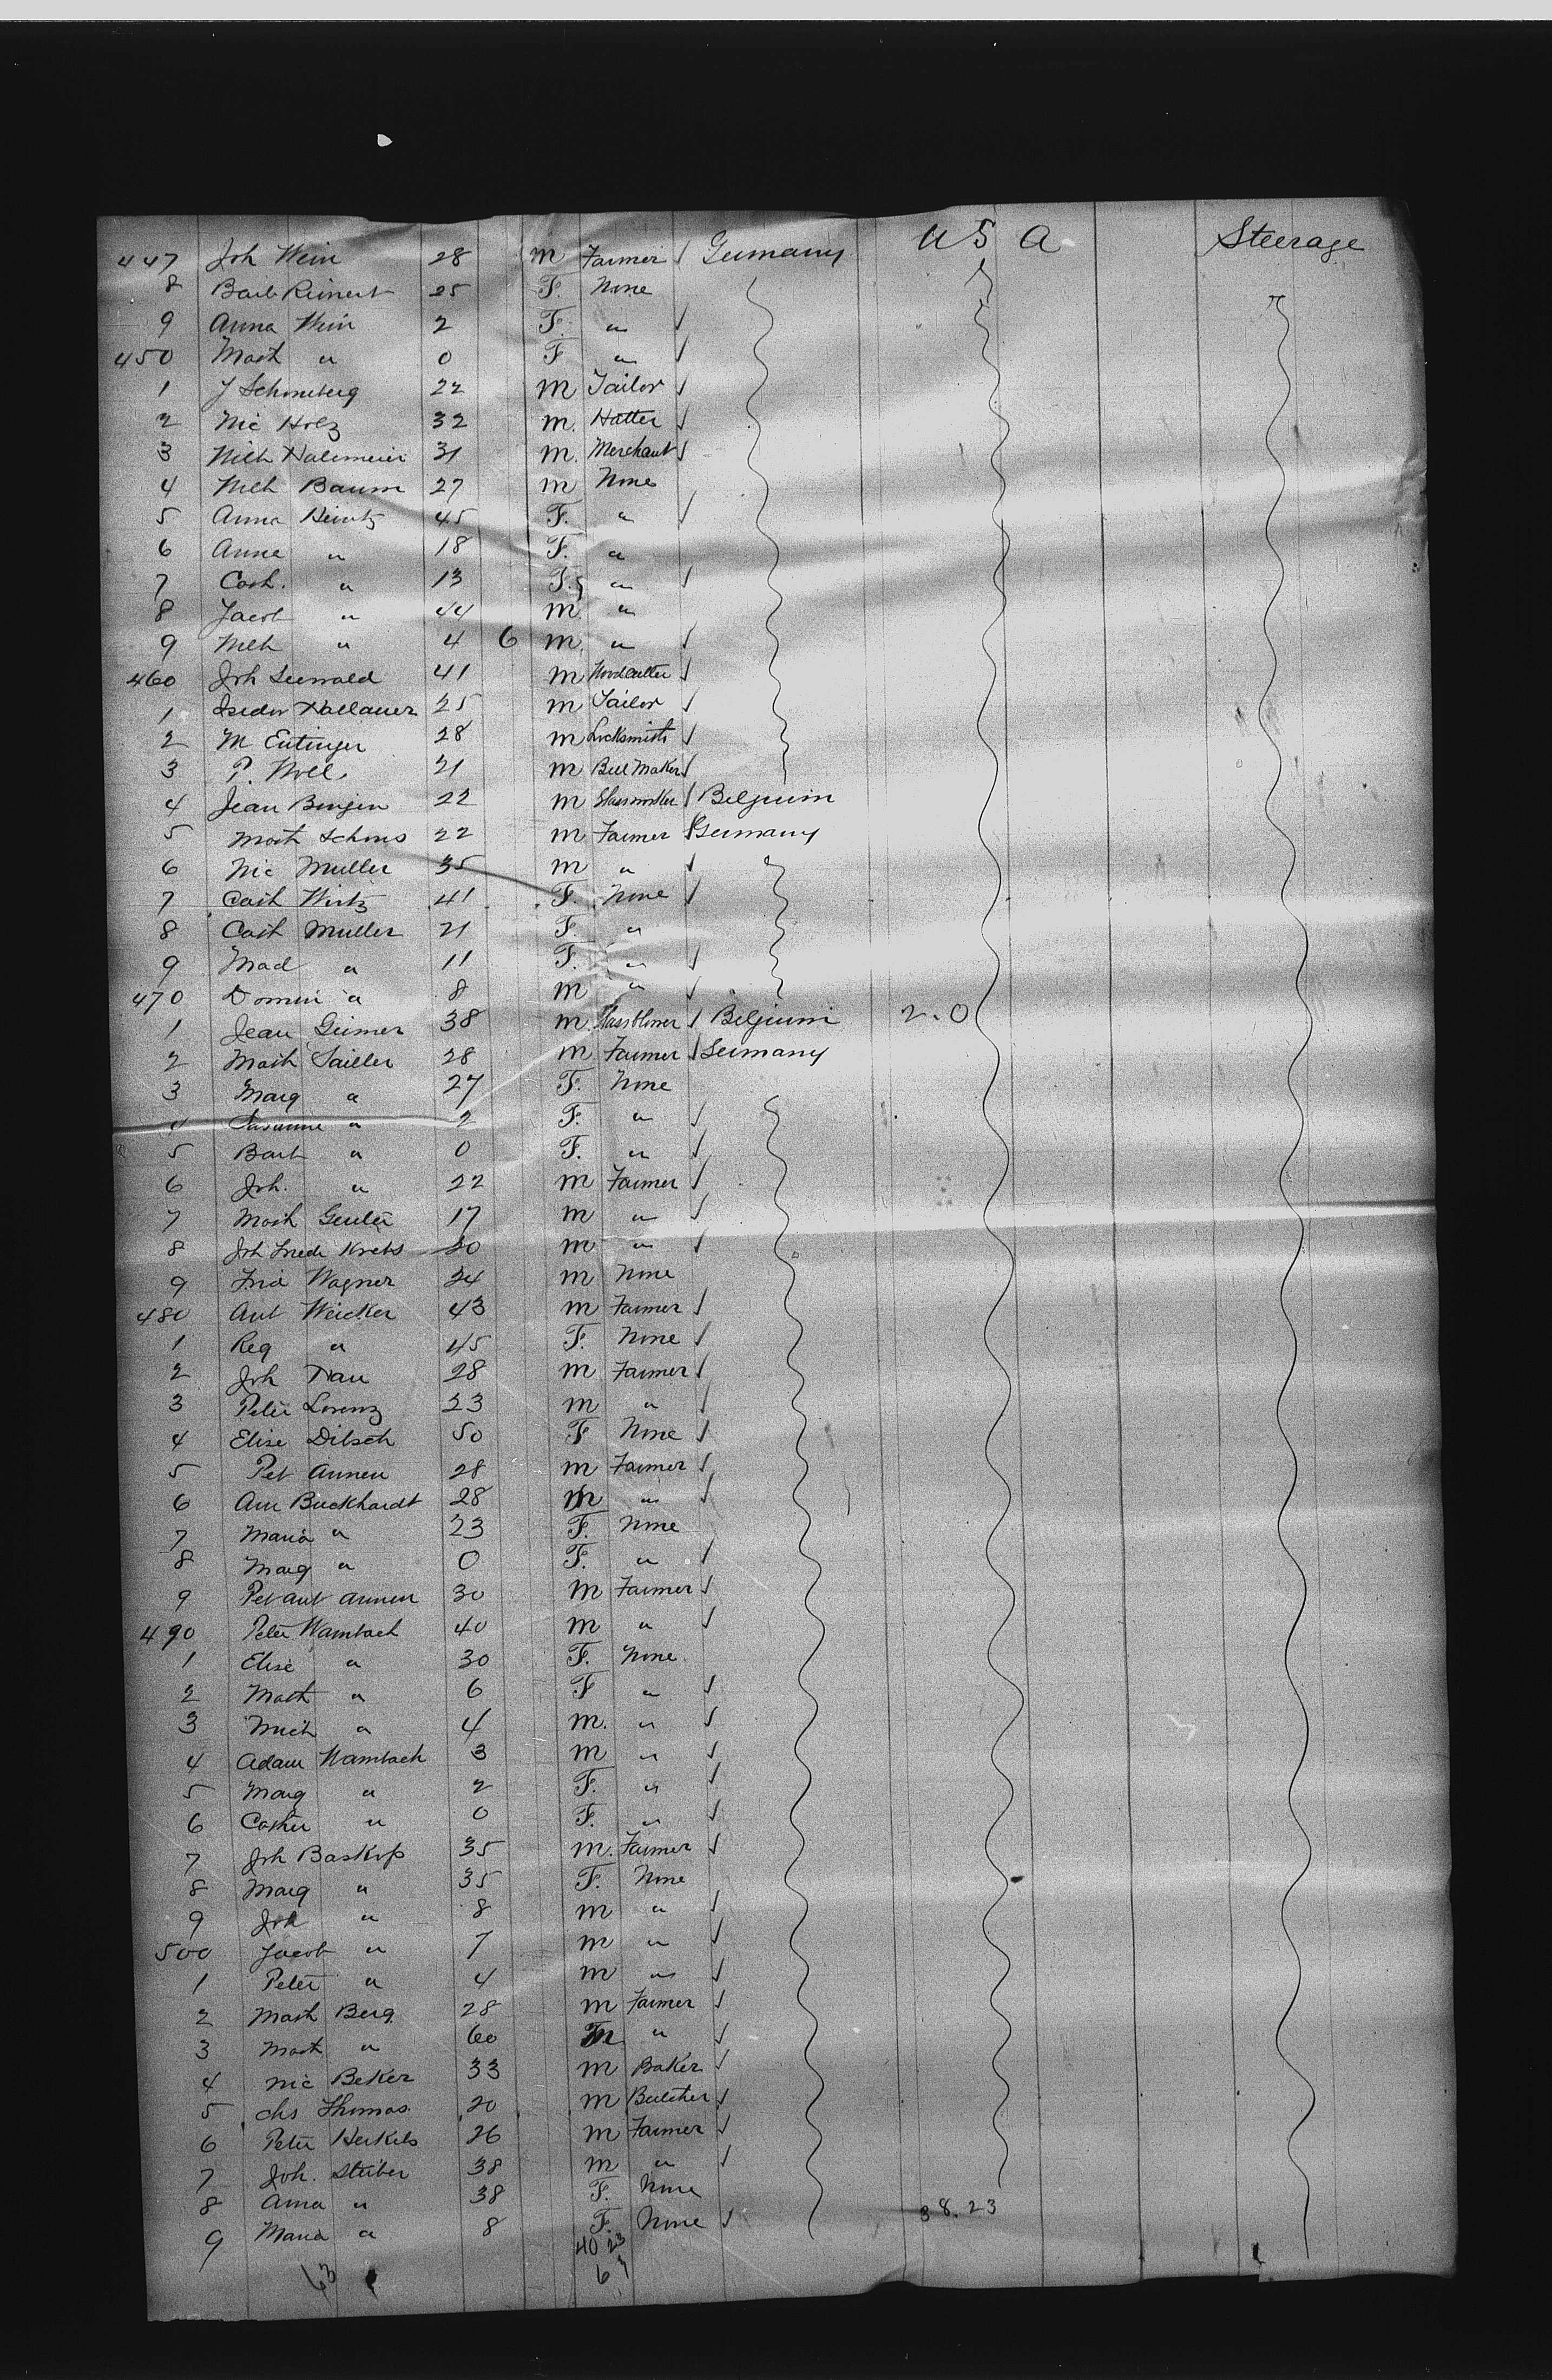 447 Joh Wein 28 m Farmer √ Germany U S A Steerage
8 Barb Reinert 25 F. None
9 Anna Wein 2 F. " √
450 Math " 0 F " √
1 J Schoneberg 22 m Tailor √
2 Nic Holz 32 m. Hatter √
3 31 m. Merchant √
4 Baum 27 m None
5 Anna Heintz 45 F. " √
6 Anna " 18 F. "
7 Cath. " 13 F. " √
8 Jacob " 44 m "
9 " 4 6 m. " √
460 Joh Seewald 41 m Woodcutter √
1 Isidor Hallauer 25 m Tailor √
2 M 28 m Locksmith √
3 P. Noll 21 m √
4 Jean 22 m Glassworker √ Belgium
5 Math Schons 22 m Farmer √ Germany
6 Nic Muller 35 m " √
7 Cath Wirtz 41 F. None √
8 Cath Muller 21 F. "
9 Mad " 11 F. " √
470 " 8 m " √
1 Jean Geimer 38 m. Glassblower √ Belgium 2.0
2 Math Sailler 28 m Farmer √ Germany
3 Marg " 27 F. None
4 Susanne " 2 F. " √
5 Barb " 0 F. " √
6 Joh. " 22 m Farmer √
7 Math 17 m " √
8 Joh Fried Krebs 20 m " √
9 Wagner 24 m None
480 Ant Weicker 43 m Farmer √
1 Reg " 45 F. None √
2 Joh 28 m Farmer √
3 Peter Lorenz 23 m " √
4 Elise Ditsch 50 F None √
5 Pet Annen 28 m Farmer √
6 Buckhardt 28 m " √
7 Maria " 23 F. None
8 Marg " 0 F. " √
9 Pet Ant Annen 30 m Farmer √
490 Peter Wambach 40 m " √
1 Elise " 30 F. None
2 Math " 6 F " √
3 Mich " 4 m. " √
4 Adam Wambach 3 m " √
5 Marg " 2 F. " √
6 " 0 F. " √
7 Joh Baskop 35 m. Farmer √
8 Marg " 35 F. None
9 Joh " 8 m " √
500 Jacob " 7 m " √
1 Peter " 4 m " √
2 Math Berg 28 m Farmer √
3 Math " 60 m " √
4 Nic Beker 33 m Baker √
5 Chs Thomas 20 m Butcher √
6 Peter Herkels 26 m Farmer √
7 Joh. Stuber 38 m " √
8 Anna " 38 F. None
9 Maria " 8 F. None √ 38.23
40 23
63